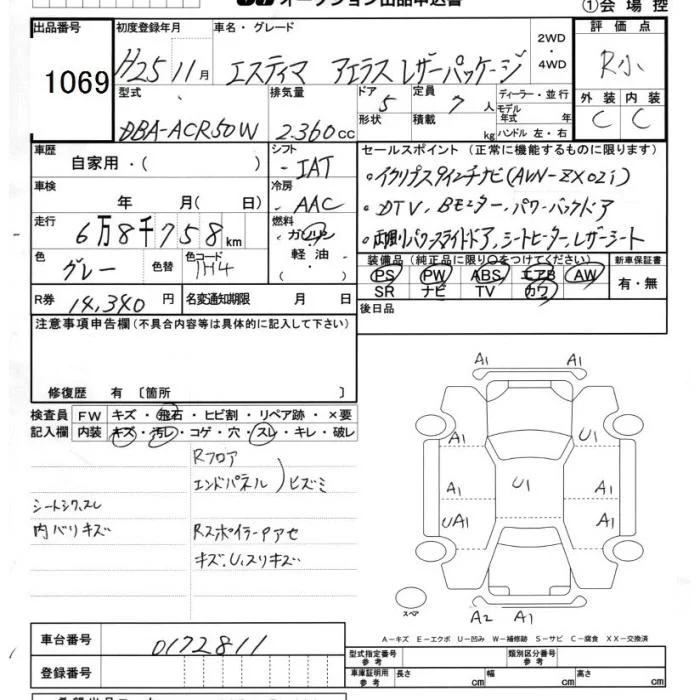 オークション出品申込書
①会場控
出品番号 1069
初度登録年月 H25 11月
車名・グレード エスティマ アエラス レザーパッケージ
2WD・4WD
評価点 R小
外装 C 内装 C
型式 DBA-ACR50W
排気量 2.360cc
ドア 5
形状
定員 7人
積載 kg
ディーラー・並行
モデル年式 年
ハンドル 左・右
車歴 自家用・( )
シフト IAT
セールスポイント (正常に機能するものに限ります)
・イクリプスタインチナビ(AVN-ZX02i)
・DTV、Bモニター、パワーバックドア
・両側パワースライドドア、シートヒーター、レザーシート
車検 年 月( 日)
冷房 AAC
走行 6万8千758km
燃料 ガソリン・軽油・( )
色 グレー 色替
色コード 1H4
装備品 (純正品に限り○をつけてください)
PS PW ABS エアB AW
SR ナビ TV カワ
新車保証書 有・無
R券 14,340円
名変通知期限 月 日
後日品
注意事項申告欄(不具合内容等は具体的に記入して下さい)
修復歴 有 〔箇所 〕
検査員記入欄
FW キズ・飛石・ヒビ割・リペア跡・×要
内装 キズ・汚レ・コゲ・穴・スレ・キレ・破レ
Rフロア
エンドパネル )ヒズミ
シートシワ、スレ
内バリキズ
Rスポイラーアセ
キズ、U、スリキズ
A1 A1
A1 U1
A1 U1 A1
UA1 A1
スペア
A2 A1
A−キズ E−エクボ U−凹み W−補修跡 S−サビ C−腐食 XX−交換済
車台番号 0172811
登録番号
型式指定番号 参考
類別区分番号 参考
車庫証明用 参考 長さ cm 幅 cm 高さ cm